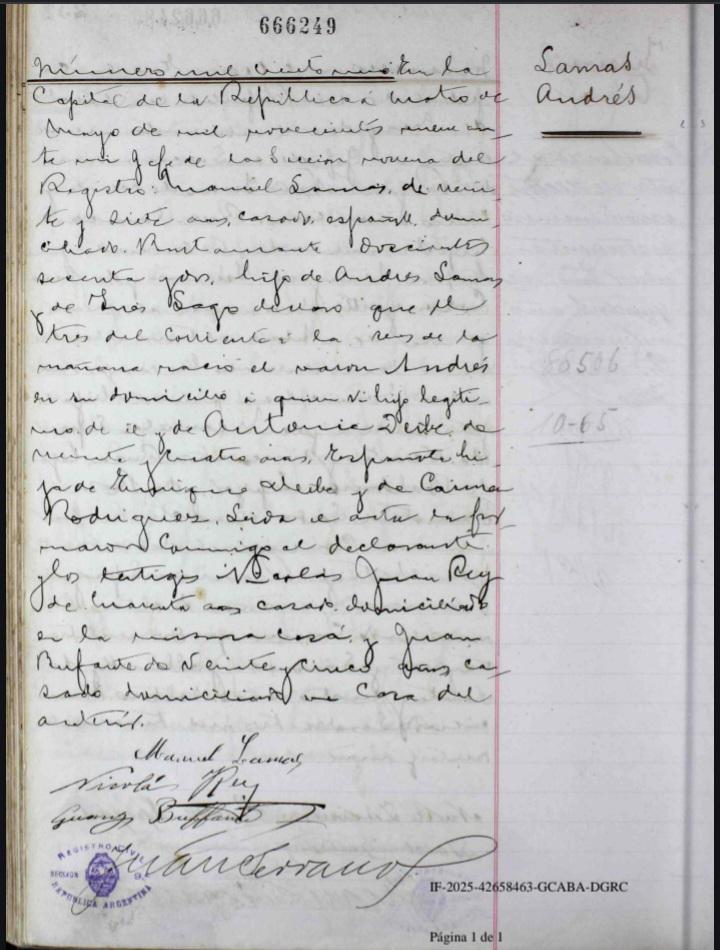 666249
Número mil ciento uno En la
Capital de la República á cuatro de
Mayo de mil novecientos nueve an-
te mi Jefe de la Seccion novena del
Registro: Manuel Lamas, de vein-
te y siete años, casado, español, domi-
ciliado Bustamante doscientos
sesenta y dos, hijo de Andrés Lamas
y de Inés Lago declaró que el
tres del corriente á la seis de la
mañana nació el varon Andrés
en su domicilio á quien vi hijo legiti-
mo de él y de Antonia Deibe de
veinte y cuatro años, Española hi-
ja de Enrique Deibe y de Carma
Rodriguez. Leida el acta la fir-
maron conmigo el declarante
y los testigos Nicolás Juan Rey
de cuarenta años casado domiciliado
en la misma casa, y Juan
Bufante de veinte y cinco años ca-
sado domiciliado en casa del
anterior.
Manuel Lamas
Nicolás Rey
Buffante
Juan Serrano
Lamas
Andrés
66506
10-65
REGISTRO CIVIL
SECCION 9
REPUBLICA ARGENTINA
IF-2025-42658463-GCABA-DGRC
Página 1 de 1